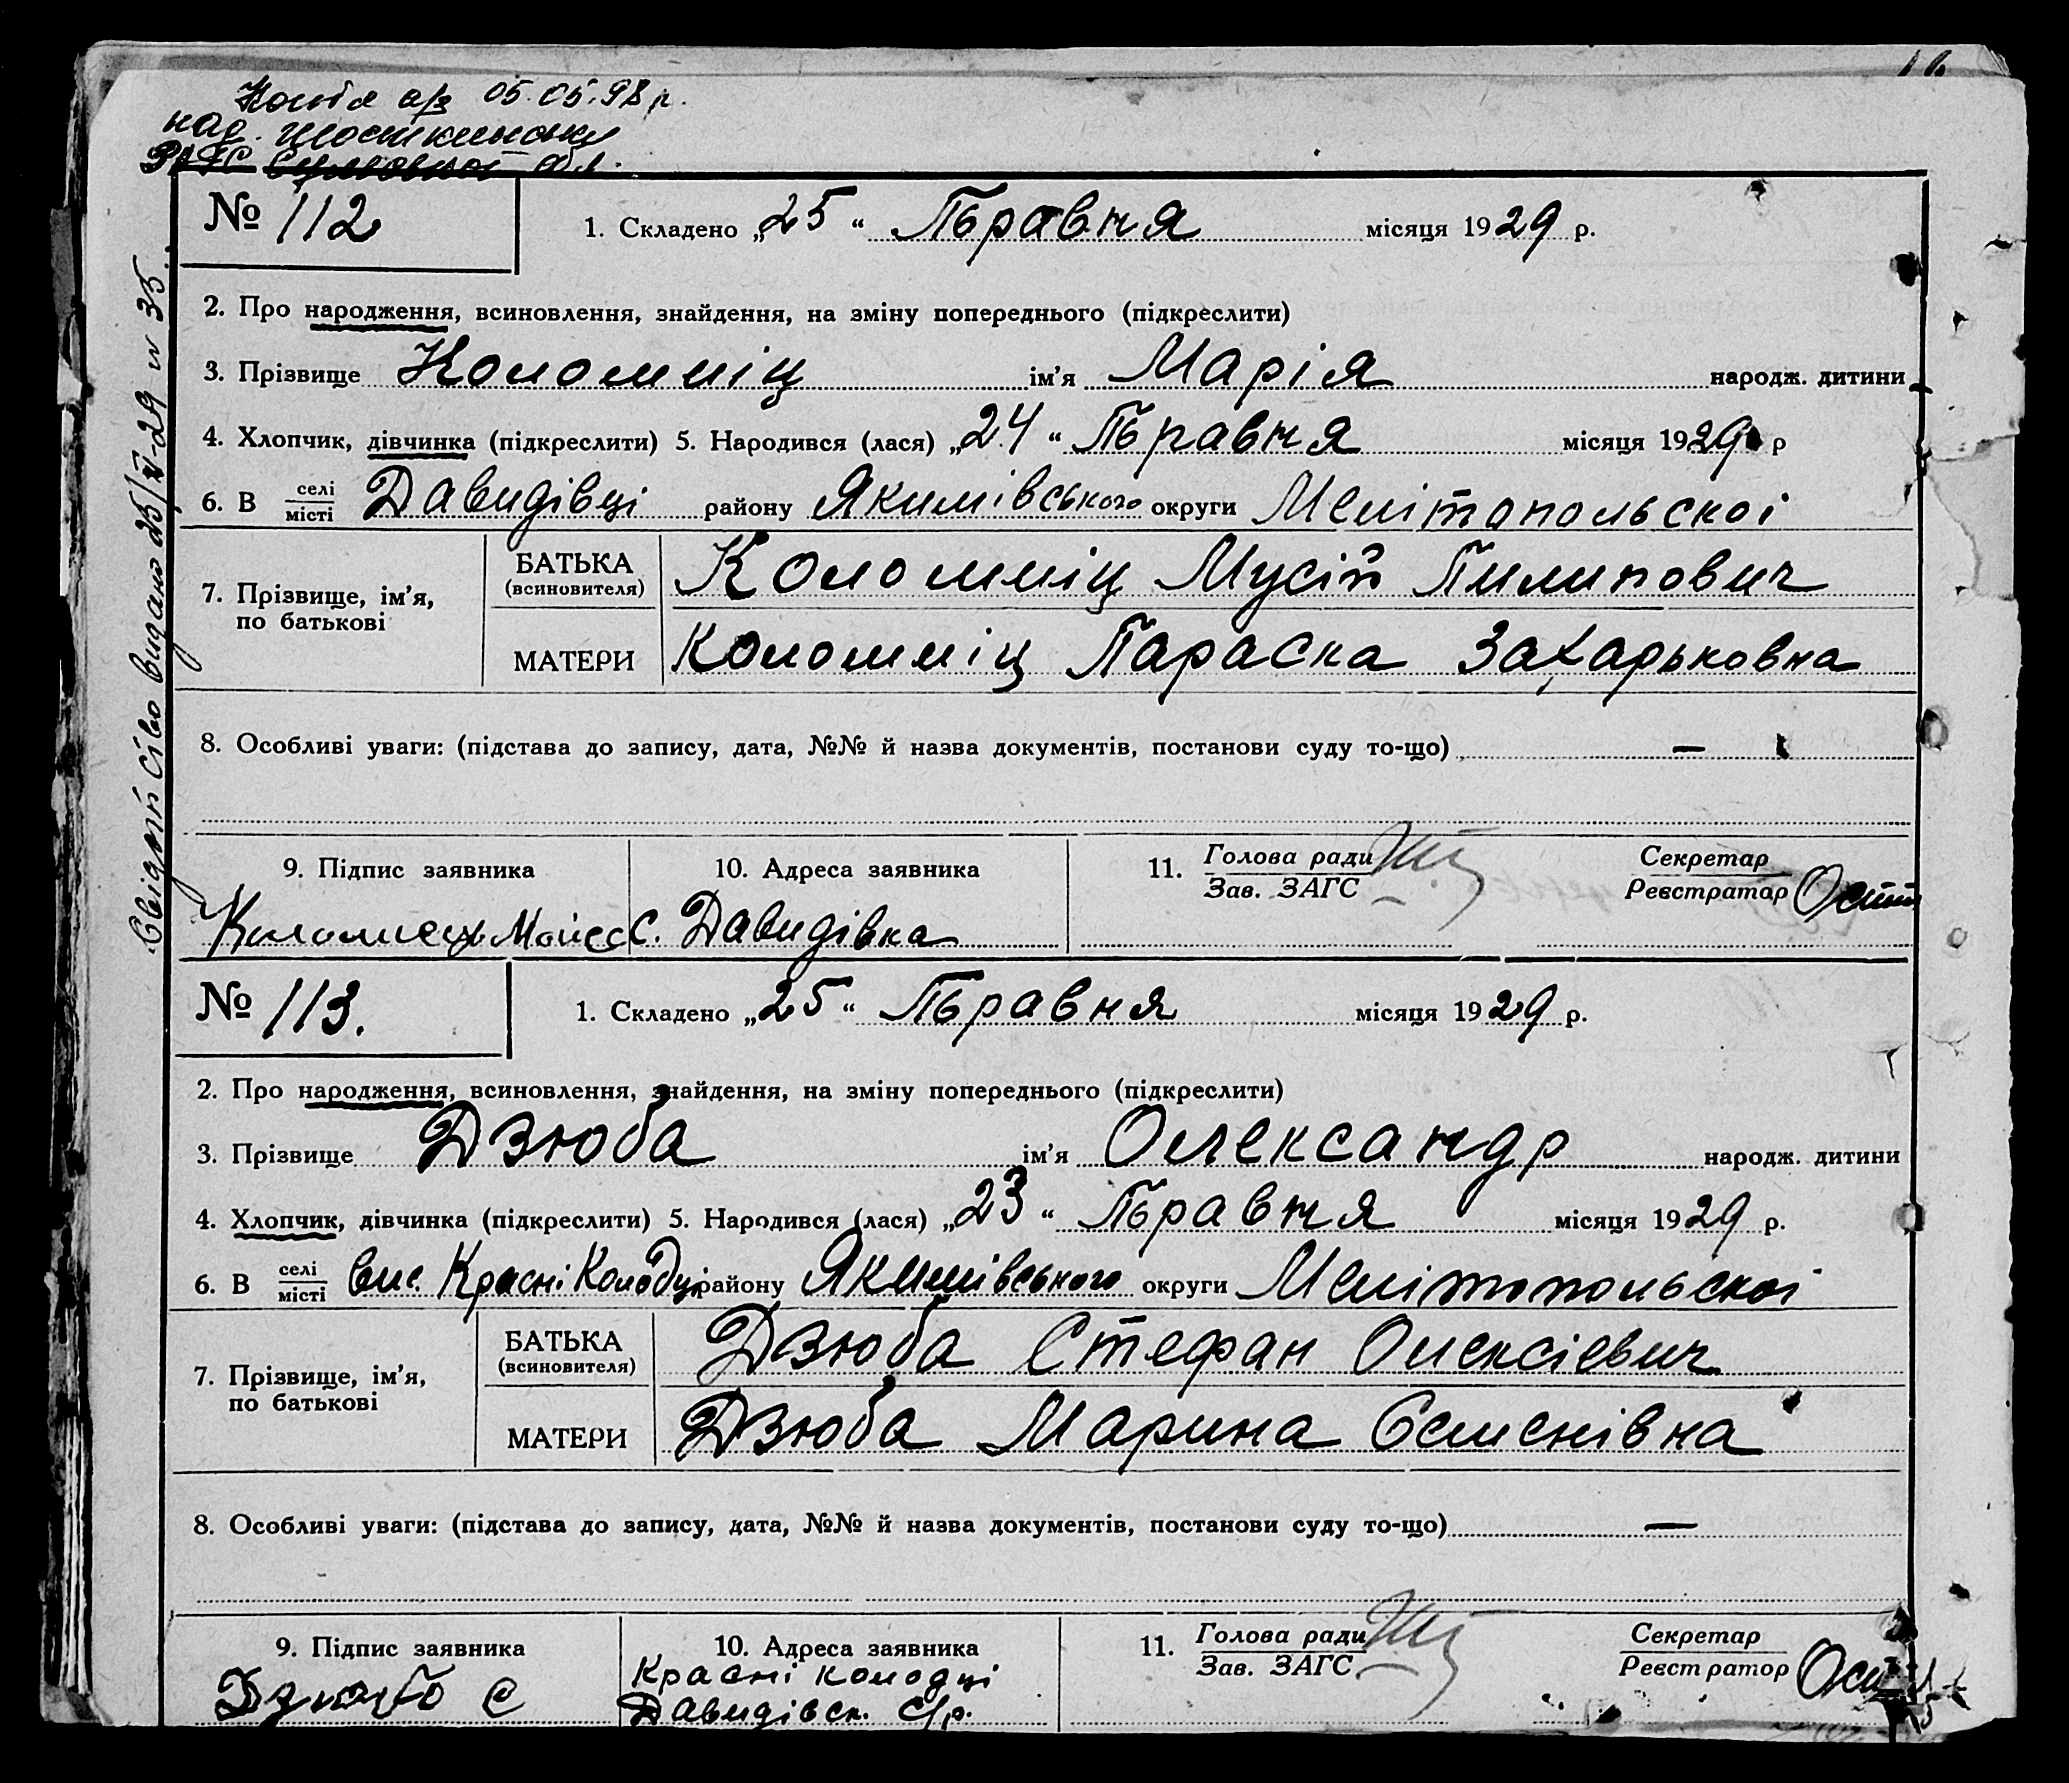 Копія а/з 05.05.98 р.
над. Шосткинському
РАГС Сумської обл.
Свідитство видано 25/V-29 № 35.
№ 112
1. Складено „25“ Тьравня місяця 1929 р.
2. Про народження, всиновлення, знайдення, на зміну попереднього (підкреслити)
3. Прізвище Коломніц ім’я Марія народж. дитини
4. Хлопчик, дівчинка (підкреслити) 5. Народився (лася) „24“ Тьравня місяця 1929 р
6. В селі місті Давидівці району Якимівського округи Мелітопольскоі
7. Прізвище, ім’я, по батькові
БАТЬКА (всиновителя) Коломніц Мусій Пилипович
МАТЕРИ Коломніц Параска Захарьковна
8. Особливі уваги: (підстава до запису, дата, №№ й назва документів, постанови суду то-що) —
9. Підпис заявника 10. Адреса заявника 11. Голова ради Зав. ЗАГС Секретар Реєстратор
Коломиець Мойсе с. Давидівка
№ 113.
1. Складено „25“ Тьравня місяця 1929 р.
2. Про народження, всиновлення, знайдення, на зміну попереднього (підкреслити)
3. Прізвище Дзюба ім’я Олександр народж. дитини
4. Хлопчик, дівчинка (підкреслити) 5. Народився (лася) „23“ Тьравня місяця 1929 р.
6. В селі місті вис. Красні Колодці району Якимівського округи Мелітопольскоі
7. Прізвище, ім’я, по батькові
БАТЬКА (всиновителя) Дзюба Стефан Олексієвич
МАТЕРИ Дзюба Марина Семенівна
8. Особливі уваги: (підстава до запису, дата, №№ й назва документів, постанови суду то-що) —
9. Підпис заявника 10. Адреса заявника 11. Голова ради Зав. ЗАГС Секретар Реєстратор
Дзюба С Красні колодці
Давидівск. с/р.